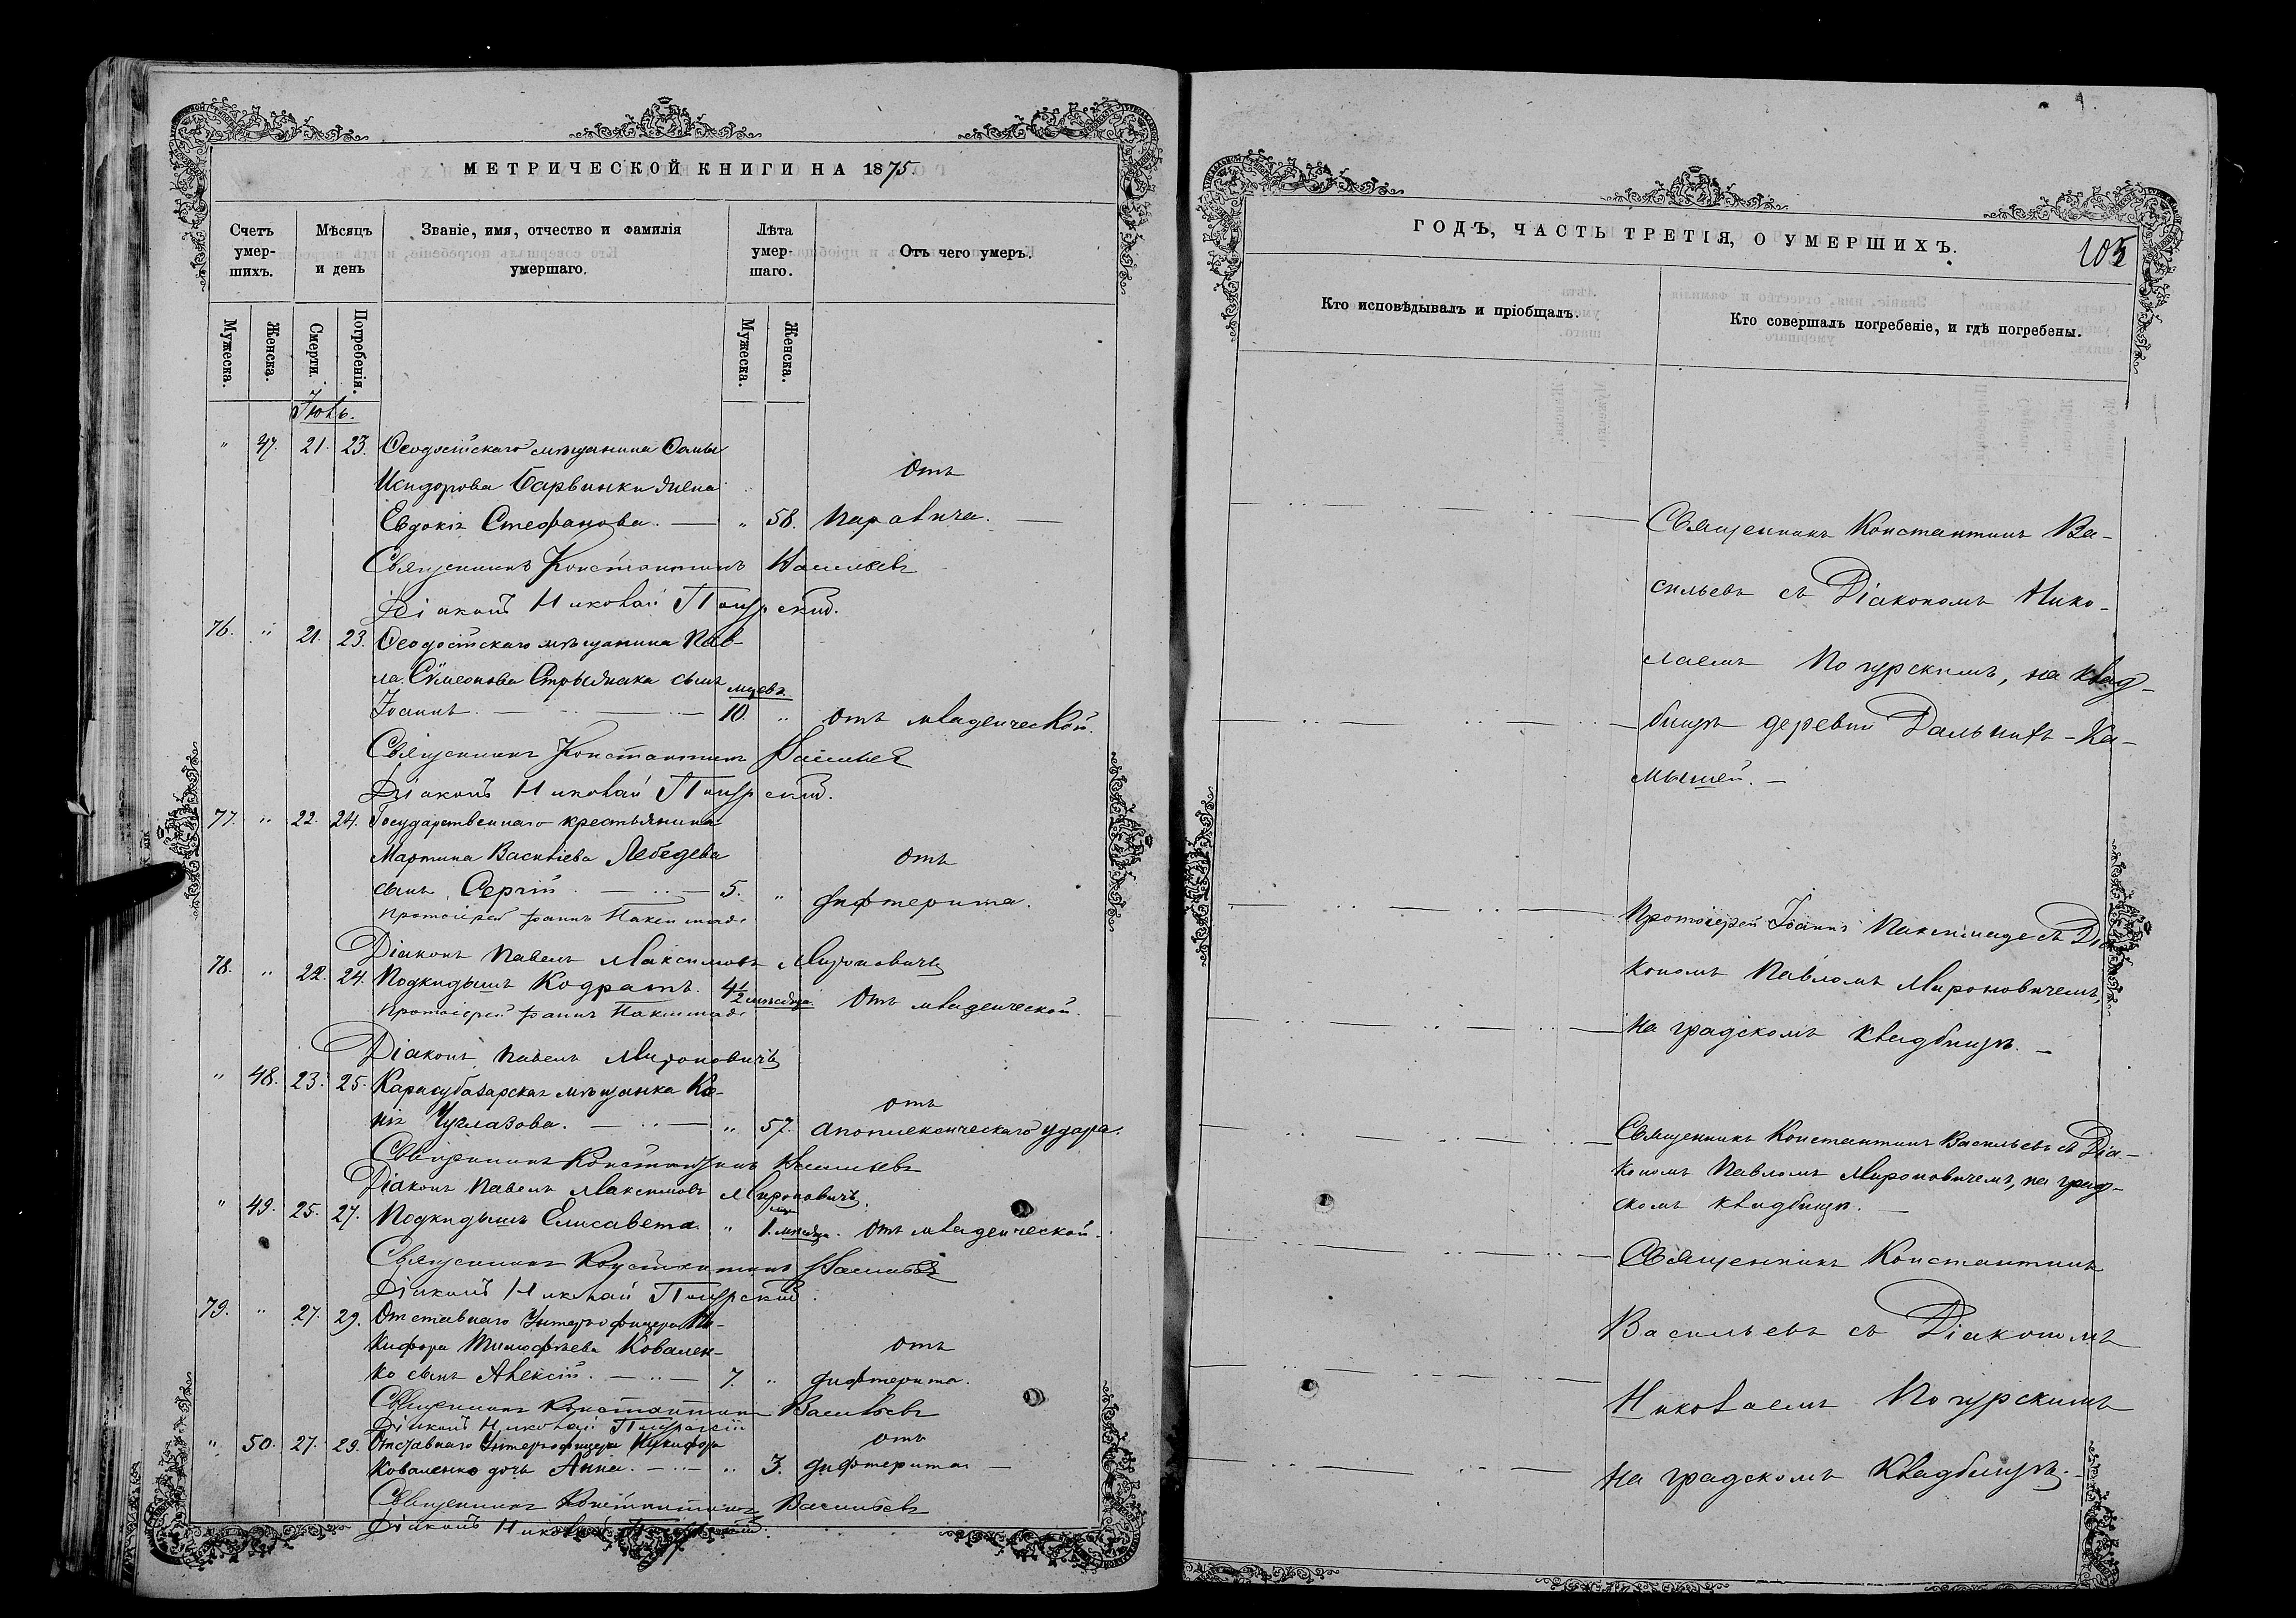 МЕТРИЧЕСКОЙ КНИГИ НА 1875.
Счетъ умер-шихъ.
Мѣсяцъ и день
Званіе, имя, отчество и фамилія умершаго.
Лѣта умер-шаго.
Отъ чего умеръ.
Мужеска.
Женска.
Смерти.
Погребенія.
Мужеска.
Женска.
Іюнь.
" 47. 21. 23. Ѳеодосійскаго мѣщанина Ѳомы
Исидорова Барвинки жена Отъ
Евдокія Стефанова. — " 58. паралича. —
Священникъ Константинъ Васильевъ
Діаконъ Николай
76. " 21. 23. Ѳеодосійскаго мѣщанина Пав-
ла Сѵмеонова Стрыжака сынъ мцевъ.
Іоаннъ. — 10. " Отъ младенческой.
Священникъ Константинъ Васильев
Діаконъ Николай
77. " 22. 24. Государственнаго крестьянина
Мартина Василіева Лебедева Отъ
сынъ Сергій. — 5. " дифтерита.
Протоіерей Іоаннъ
Діаконъ Павелъ Максимовъ Мироновичъ
78. " 22. 24. Подкидышъ Кодратъ. 4½ мѣсяца. Отъ младенческой.
Протоіерей Іоаннъ
Діаконъ Павелъ Мироновичъ
" 48. 23. 25. Карасубазарская мѣщанка Ксе-
нія Чуглазова. — " 57. отъ апоплексическаго удара.
Священникъ Константинъ Васильевъ
Діаконъ Павелъ Максимовъ Мироновичъ.
" 49. 25. 27. Подкидышъ Елисавета " 1. мѣсяца. Отъ младенческой.
Священникъ Константинъ Васильев
Діаконъ Николай
79. " 27. 29. Отставнаго Унтеръ-офицера Ни-
кифора Тимофѣева Ковален- отъ
ко сынъ Алексій. — 7. " дифтерита.
Священникъ Константинъ Васильевъ
Діаконъ Николай
" 50. 27. 29. Отставнаго Унтеръ-офицера Никифора отъ
Коваленко дочь Анна. — " 3. дифтерита —
Священникъ Константинъ Васильевъ
Діаконъ Николай
ГОДЪ, ЧАСТЬ ТРЕТІЯ, О УМЕРШИХЪ.
105
Кто исповѣдывалъ и пріобщалъ.
Кто совершалъ погребеніе, и гдѣ погребены.
Священникъ Константинъ Ва-
сильевъ съ Діакономъ Нико-
лаемъ Погурскимъ, на клад-
бищѣ деревни Дальнихъ-Ка-
мышей. —
Протоіерей Іоаннъ съ Діа-
кономъ Павломъ Мироновичемъ,
на градскомъ кладбищѣ. —
Священникъ Константинъ Васильевъ съ Діа-
кономъ Павломъ Мироновичемъ, на град-
скомъ кладбищѣ. —
Священникъ Константинъ
Васильевъ съ Діакономъ
Николаемъ Погурскимъ
на градскомъ кладбищѣ. —